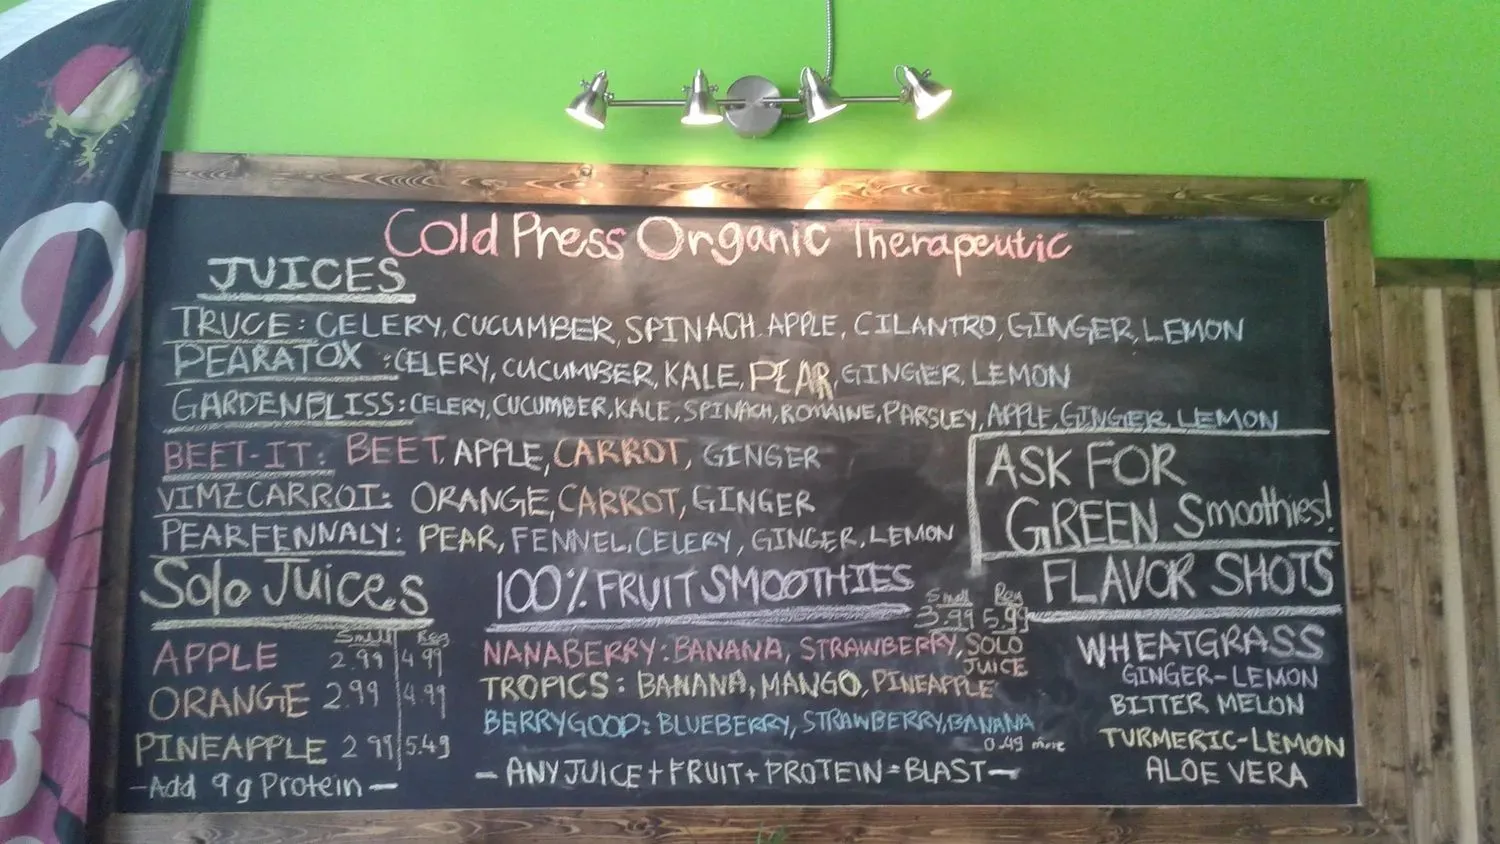 Clean
Cold Press Organic Therapeutic
JUICES
TRUCE: CELERY, CUCUMBER, SPINACH. APPLE, CILANTRO, GINGER, LEMON
PEARATOX : CELERY, CUCUMBER, KALE, PEAR, GINGER, LEMON
GARDENBLISS: CELERY, CUCUMBER, KALE, SPINACH, ROMAINE, PARSLEY, APPLE, GINGER, LEMON
BEET-IT: BEET, APPLE, CARROT, GINGER
VIMZCARROT: ORANGE, CARROT, GINGER
PEARFENNALY: PEAR, FENNEL, CELERY, GINGER, LEMON
ASK FOR
GREEN Smoothies!
Solo Juices
Small Reg
APPLE 2.99 4.99
ORANGE 2.99 4.99
PINEAPPLE 2.99 5.49
-Add 9g Protein-
100% FRUIT SMOOTHIES
Small Reg
3.99 5.99
NANABERRY: BANANA, STRAWBERRY, SOLO
JUICE
TROPICS: BANANA, MANGO, PINEAPPLE
BERRYGOOD: BLUEBERRY, STRAWBERRY, BANANA
0.49 more
- ANY JUICE + FRUIT + PROTEIN = BLAST -
FLAVOR SHOTS
WHEATGRASS
GINGER-LEMON
BITTER MELON
TURMERIC-LEMON
ALOE VERA